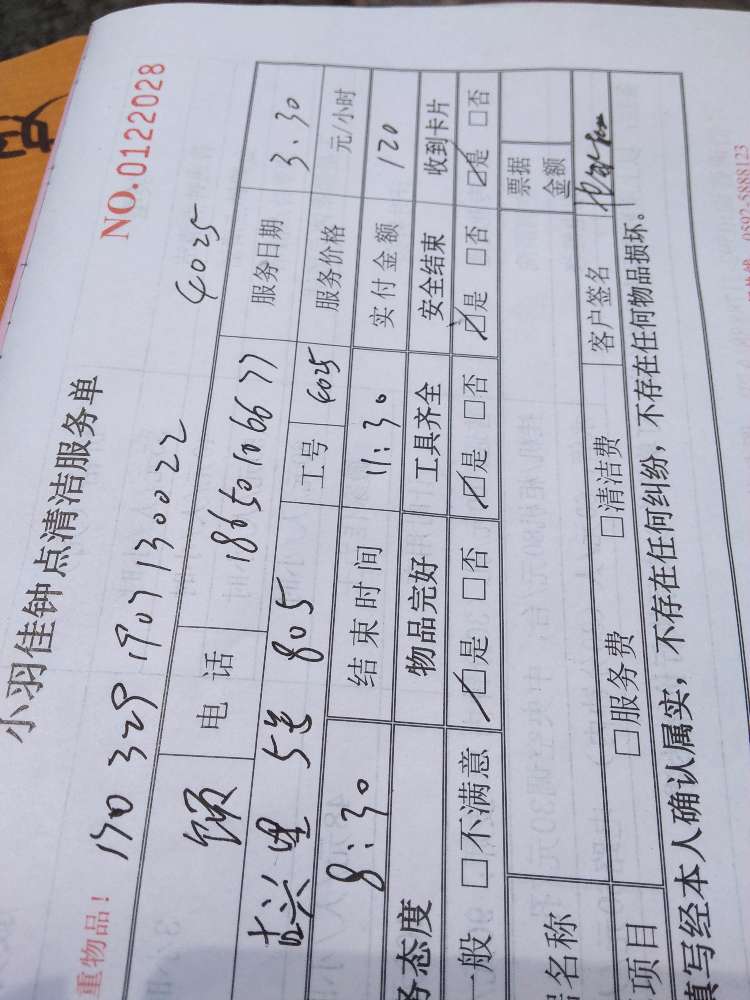 NO.0122028
小羽佳钟点清洁服务单
4025
重物品!
170329190713 0022
电话 18650106677 服务日期 3.30
吉兴里 5号 805 工号 4025 服务价格 元/小时
8:30 结束时间 11:30 实付金额 120
务态度 物品完好 工具齐全 安全结束 收到卡片
一般 □不满意 ☑是 □否 ☑是 □否 ☑是 □否 ☑是 □否
名称 票据金额
项目 □服务费 □清洁费 客户签名
填写经本人确认属实，不存在任何纠纷，不存在任何物品损坏。
0592-5888123